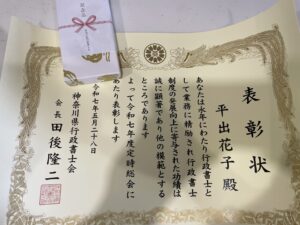 表彰状
平出花子殿
あなたは永年にわたり行政書士と
して業務に精励され行政書士
制度の発展向上に寄与された功績は
誠に顕著であり他の模範とする
ところであります
よって令和七年度定時総会に
あたり表彰します
令和七年五月二十八日
神奈川県行政書士会
会長 田後隆二